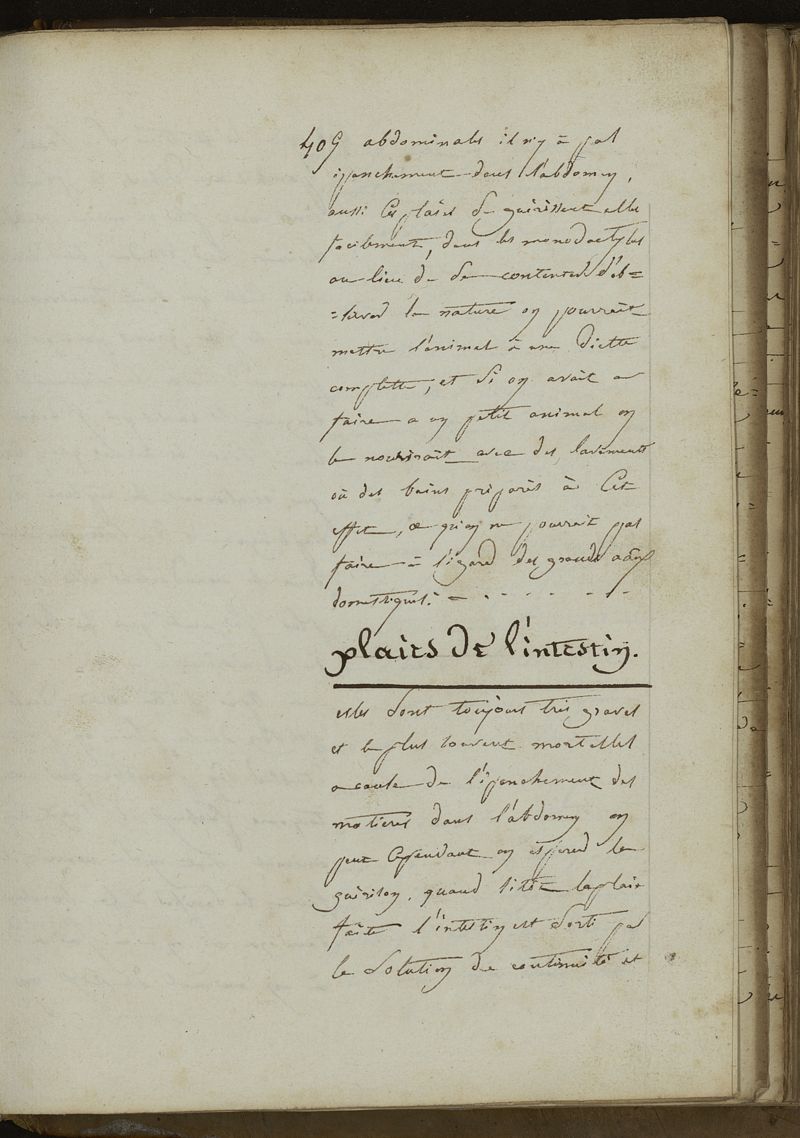 409 abdominales il n'y à pas
épanchement dans l'abdomen,
aussi ces plaies se guérissent elles
facilement, dans les monodactyles
au lieu de se contenter d'ob=
=server la nature on pourrait
mettre l'animal à une diette
complette, et si on avait a
faire a un petit animal on
le nourirait avec des lavements
où des bains préparés à cet
effet, ce qu'on ne pourrait pas
faire à l'égard des grands
domestiques.
plaies de l'intestin.
elles sont toujours très graves
et le plus souvent mortelles
a cause de l'épanchement des
matières dans l'abdomen on
peut cependant en espérer la
guérison, quand sitôt la plaie
faite l'intestin est sorti par
la solution de continuité et